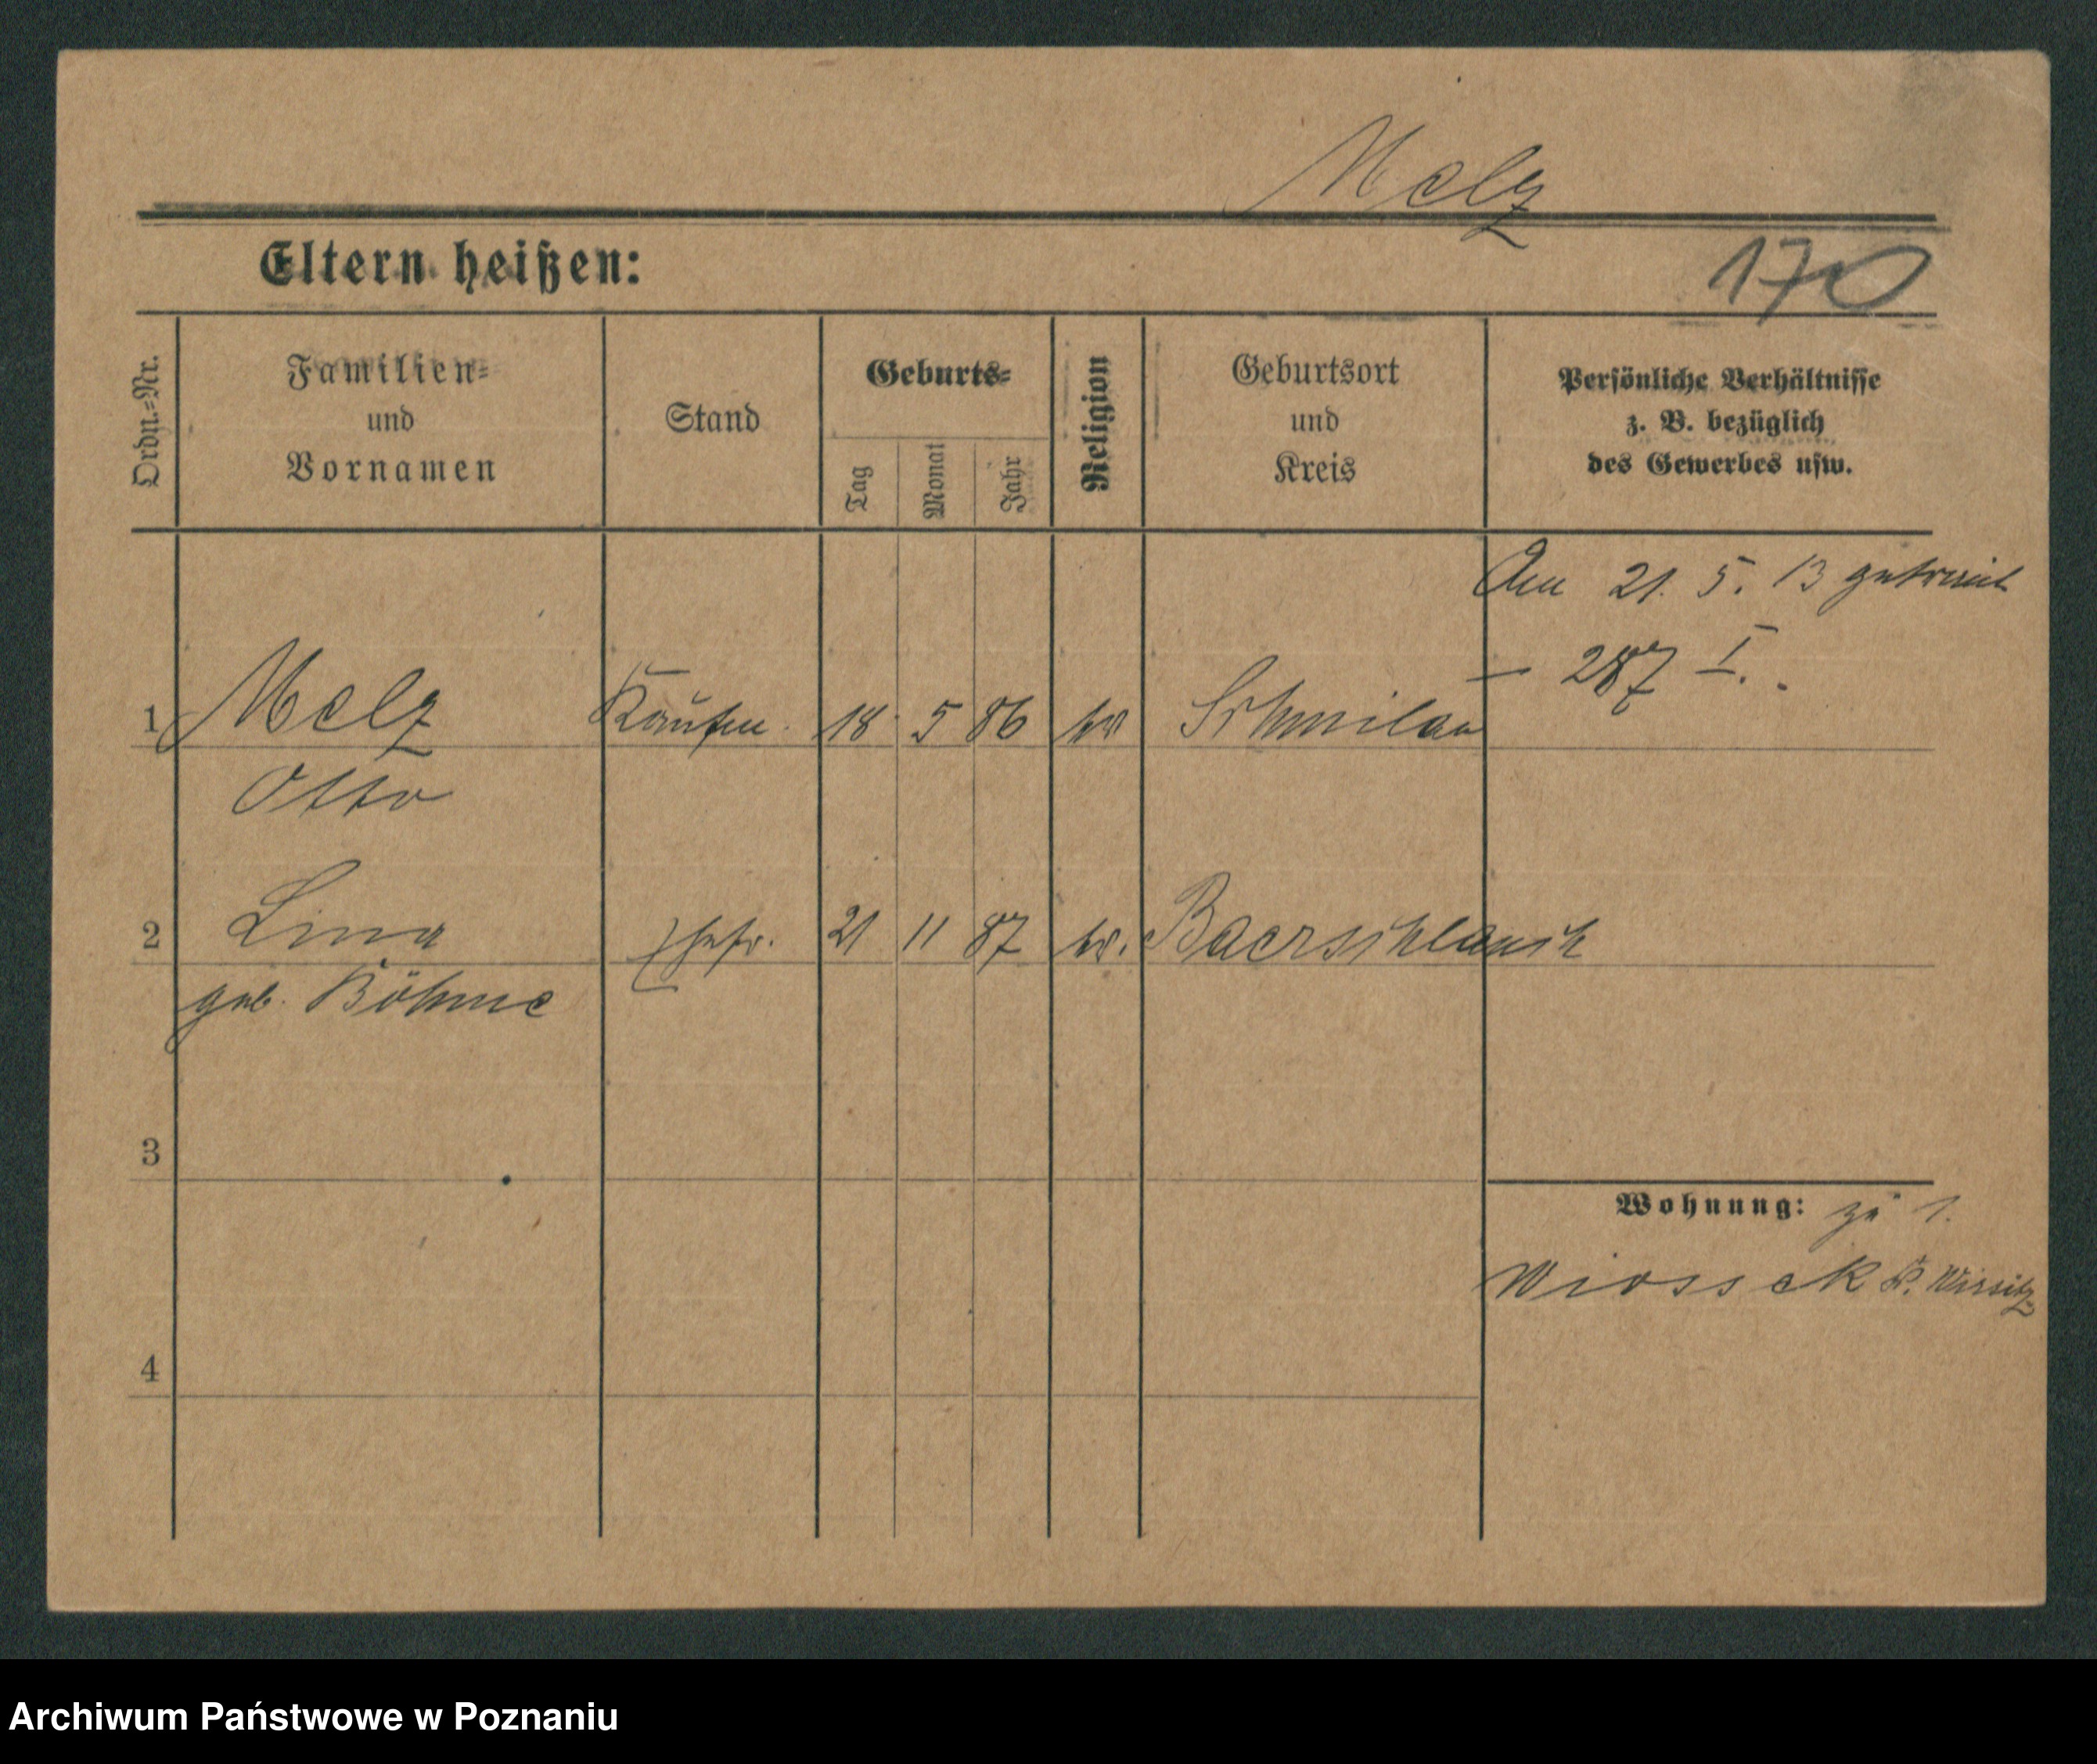 Melz
Eltern heißen:
170
Ordn.-Nr.
Familien-
und
Vornamen
Stand
Geburts-
Tag
Monat
Jahr
Religion
Geburtsort
und
Kreis
Persönliche Verhältnisse
z. B. bezüglich
des Gewerbes usw.
Am 21. 5. 13 getraut
— 287 I.
1 Melz Kaufm. 18 5 86 ev Schmilau
Otto
2 Lina Ehefr. 21 11 87 ev.
geb. Böhme
3
Wohnung: zu 1.
Wiossek Kr. Wirsitz
4
Archiwum Państwowe w Poznaniu